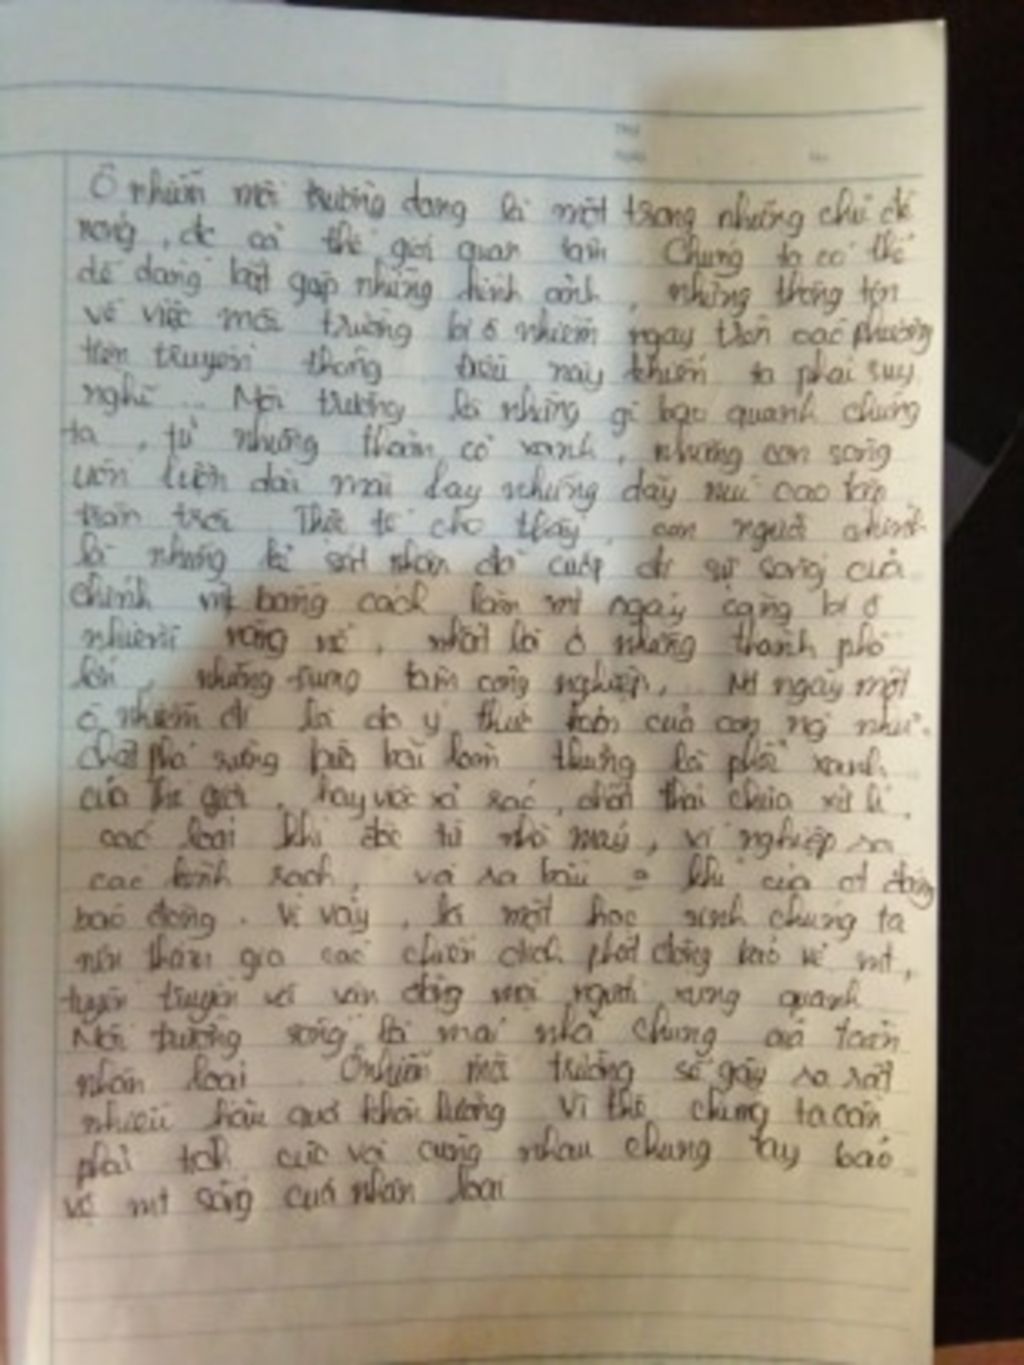 Ô nhiễm môi trường đang là một trong những chủ đề
nóng, đc cả thế giới quan tâm Chúng ta có thể
dễ dàng bắt gặp những hình ảnh, những thông tin
về việc môi trường bị ô nhiễm ngay trên các phương
tiện truyền thông điều này khiến ta phải suy
nghĩ.. Môi trường là những gì bao quanh chúng
ta, từ những thảm cỏ xanh, những con sông
uốn lượn dài mãi hay những dãy núi cao tắp
trân trời Thực tế cho thấy, con người chính
là những kẻ sát nhân đã cướp đi sự sống của
chính mt bằng cách làm mt ngày càng bị ô
nhiễm nặng nề, nhất là ở những thành phố
lớn, những trung tâm công nghiệp,.. Mt ngày một
ô nhiễm đi là do ý thức kém của con ng như
chặt phá rừng bừa bãi làm thủng lá phổi xanh
của thế giới, hay việc xả rác, chất thải chưa xử lí,
các loại khí độc từ nhà máy, xí nghiệp ra
các kênh rạch, và ra bầu khí của đáng
báo động. Vì vậy, là một học sinh chúng ta
nên tham gia các chiến dịch phát động bảo vệ mt,
tuyên truyền với vận động mọi người xung quanh
Môi trường sống là mái nhà chung của toàn
nhân loại Ô nhiễm môi trường sẽ gây ra rất
nhiều hậu quả khôn lường Vì thế chúng ta cần
phải tích cực và cùng nhau chung tay bảo
vệ mt sống của nhân loại